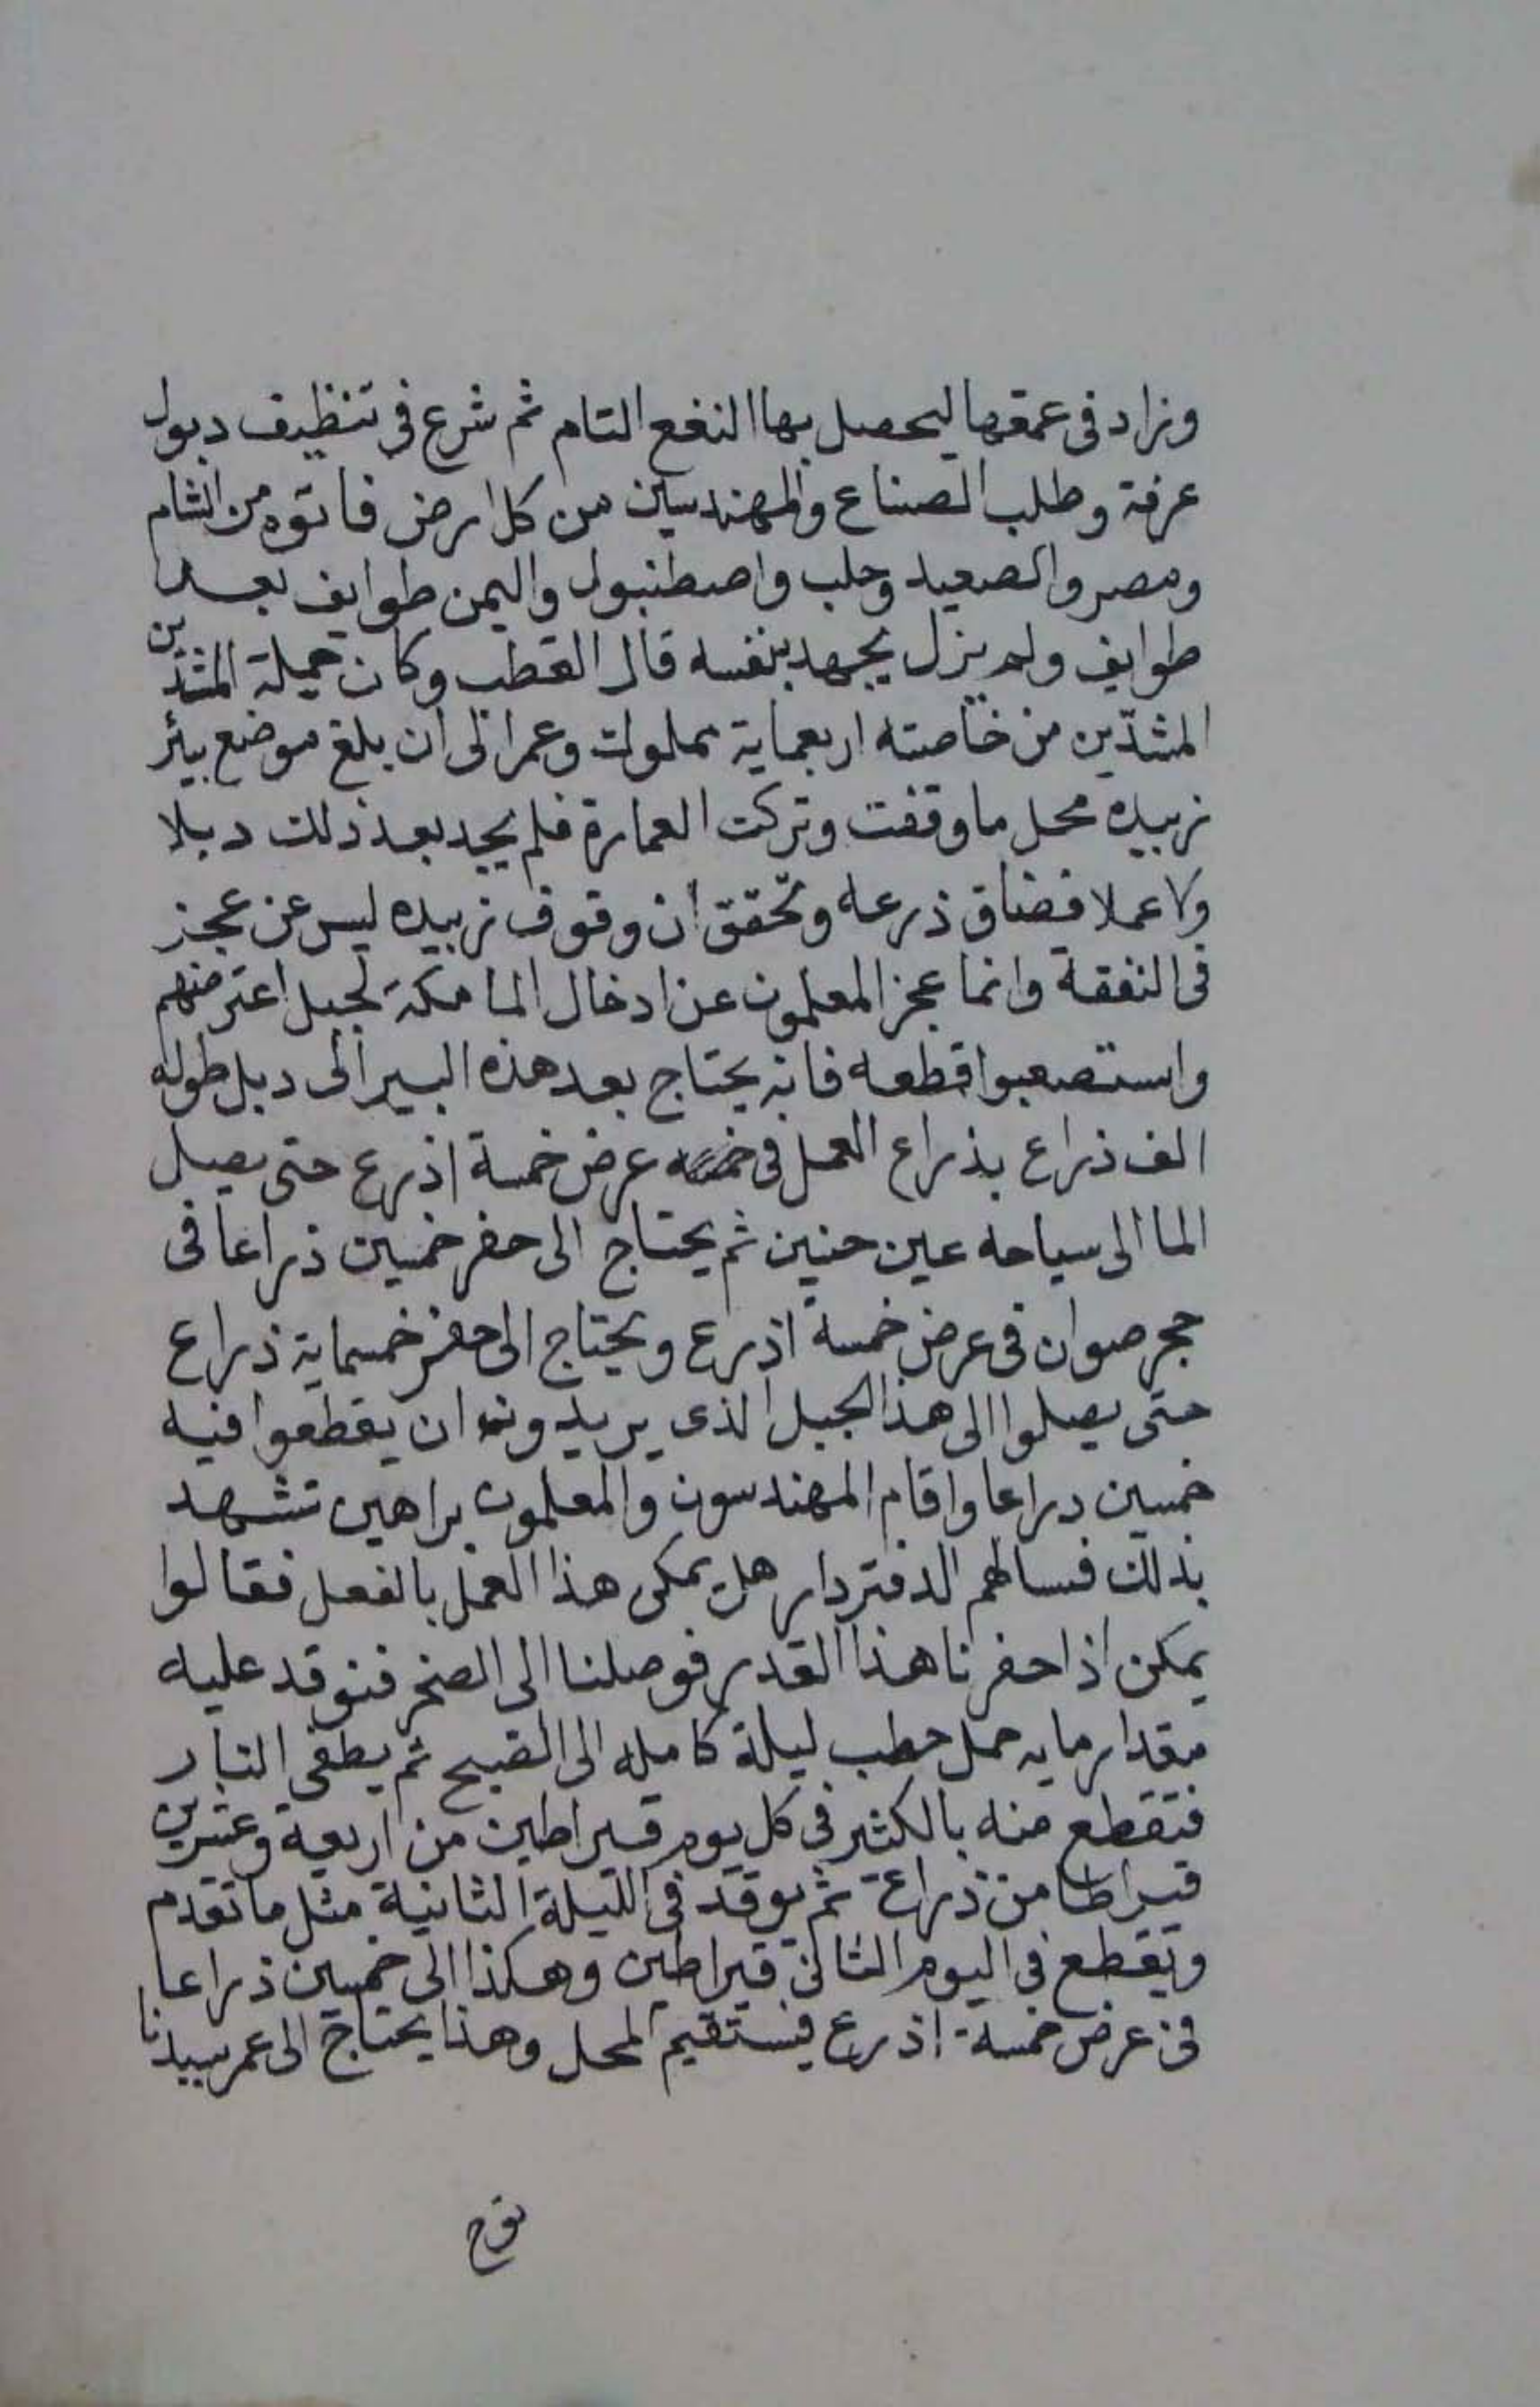 وزاد فى عمقها ليحصل بها النفع التام ثم شرع فى تنظيف دبول
عرفة وطلب الصناع والمهندسين من كل ارض فاتوه من الشام
ومصر والصعيد وحلب واصطنبول واليمن طوايف بعد
طوايف ولم يزل يجهد بنفسه قال القطب وكان جملة المشدين
المشدّين من خاصته اربعماية مملوك وعمر الى ان بلغ موضع بيئر
زبيده محل ما وقفت وتركت العمارة فلم يجد بعد ذلك دبلا
ولا عملا فضاق ذرعه وتحقق ان وقوف زبيده ليس عن عجز
فى النفقة وانما عجز المعلمون عن ادخال الما مكة لجبل اعترضهم
واستصعبوا قطعه فانه يحتاج بعد هذه البير الى دبل طوله
الف ذراع بذراع العمل فى عرض خمسة اذرع حتى يصل
الما الى سياحه عين حنين ثم يحتاج الى حفر خمسين ذراعا فى
حجر صوان فى عرض خمسة اذرع ويحتاج الى حفر خمسماية ذراع
حتى يصلوا الى هذا الجبل الذى يريدونه ان يقطعوا فيه
خمسين دراعا واقام المهندسون والمعلمون براهين تشهد
بذلك فسالهم الدفتردار هل يمكن هذا العمل بالفعل فقالوا
يمكن اذا حفرنا هذا القدر فوصلنا الى الصخر فنوقد عليه
مقدار مايه حمل حطب ليلة كامله الى الصبح ثم يطفى النار
فتقطع منه بالكثير فى كل يوم قيراطين من اربعة وعشرين
قيراطا من ذراع ثم يوقد فى الليلة الثانية مثل ما تقدم
ويقطع فى اليوم الثانى قيراطين وهكذا الى خمسين ذراعا
فى عرض خمسة اذرع فيستقيم المحل وهذا يحتاج الى عمر سيدنا
نوح